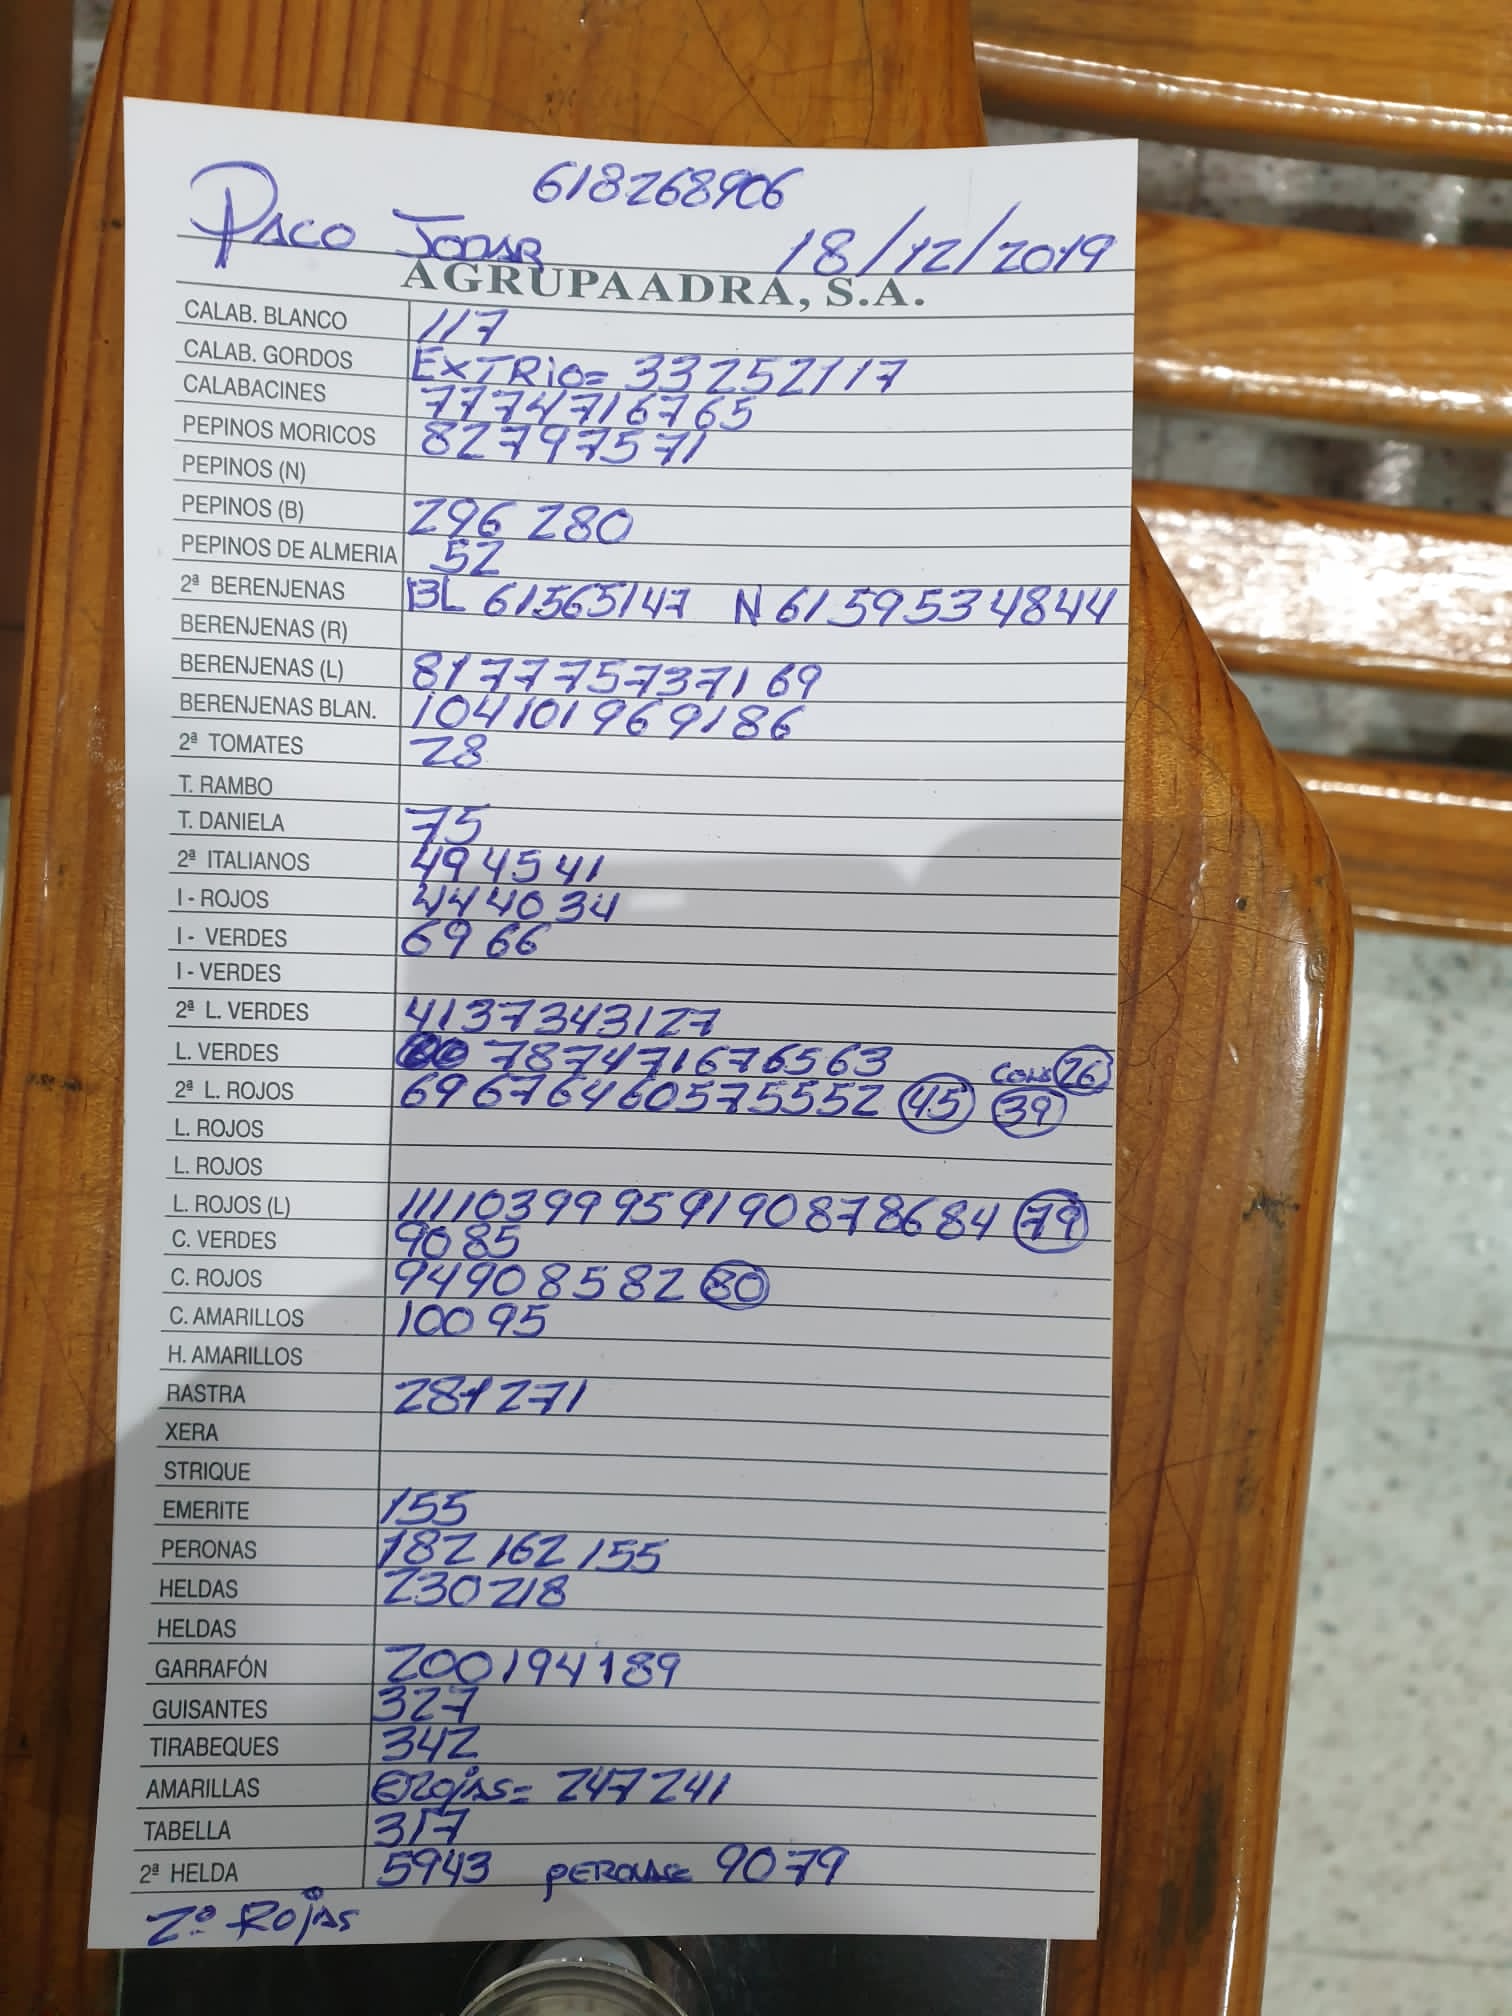 618268906
PACO JODAR 18/12/2019
AGRUPAADRA, S.A.
CALAB. BLANCO 117
CALAB. GORDOS EXTRIO= 33 25 21 17
CALABACINES 77 74 71 67 65
PEPINOS MORICOS 82 79 75 71
PEPINOS (N)
PEPINOS (B) 296 280
PEPINOS DE ALMERIA 52
2ª BERENJENAS BL 61 56 51 47 N 61 59 53 48 44
BERENJENAS (R)
BERENJENAS (L) 81 77 75 73 71 69
BERENJENAS BLAN. 104 101 96 91 86
2ª TOMATES 28
T. RAMBO
T. DANIELA 75
2ª ITALIANOS 49 45 41
I - ROJOS 44 40 34
I - VERDES 69 66
I - VERDES
2ª L. VERDES 41 37 34 31 27
L. VERDES 78 74 71 67 65 63 CONS 26
2ª L. ROJOS 69 67 64 60 57 55 52 45 39
L. ROJOS
L. ROJOS
L. ROJOS (L) 111 110 103 99 95 91 90 87 86 84 79
C. VERDES 90 85
C. ROJOS 94 90 85 82 80
C. AMARILLOS 100 95
H. AMARILLOS
RASTRA 281 271
XERA
STRIQUE
EMERITE 155
PERONAS 182 162 155
HELDAS 230 218
HELDAS
GARRAFÓN 200 194 189
GUISANTES 327
TIRABEQUES 342
AMARILLAS ROJAS= 247 241
TABELLA 317
2ª HELDA 59 43 PERONAS= 90 79
2ª ROJAS